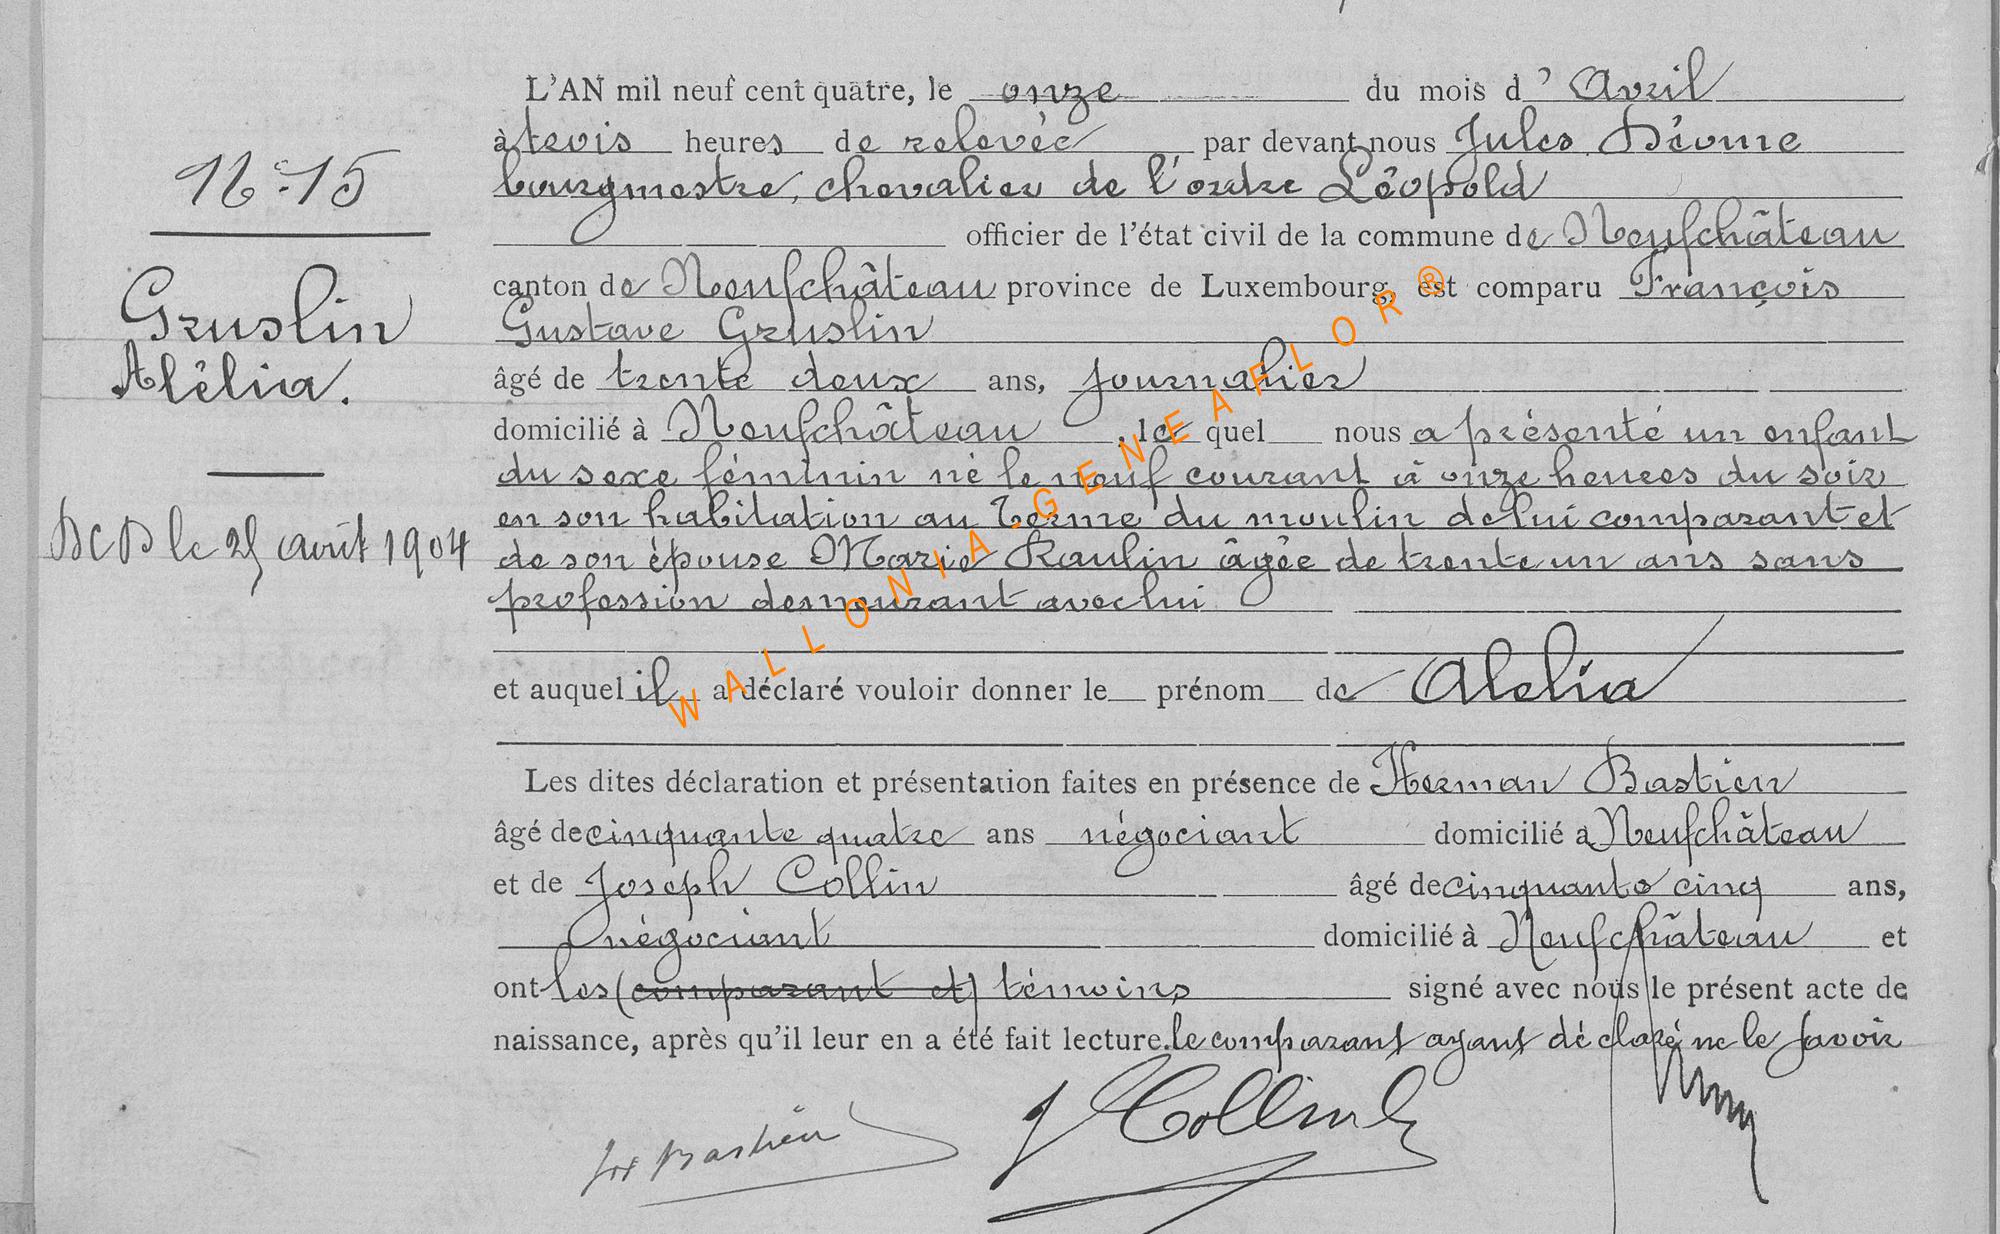 L'AN mil neuf cent quatre, le onze du mois d'Avril
à trois heures de relevée par devant nous Jules
bourgmestre, chevalier de l'ordre Léopold
officier de l'état civil de la commune de Neufchâteau
canton de Neufchâteau province de Luxembourg, est comparu François
Gustave Gruslin
âgé de trente deux ans, journalier
domicilié à Neufchâteau, lequel nous a présenté un enfant
du sexe féminin né le neuf courant à onze heures du soir
en son habitation au Terme du moulin de lui comparant et
de son épouse Marie Raulin âgée de trente un ans sans
profession demeurant avec lui
et auquel il a déclaré vouloir donner le prénom de Alélia
Les dites déclaration et présentation faites en présence de Herman Bastien
âgé de cinquante quatre ans négociant domicilié à Neufchâteau
et de Joseph Collin âgé de cinquante cinq ans,
négociant domicilié à Neufchâteau et
ont les (comparant et) témoins signé avec nous le présent acte de
naissance, après qu'il leur en a été fait lecture. le comparant ayant déclaré ne le savoir
Bastien J Collin
N° 15
Gruslin
Alélia.
DCD le 25 août 1904
WALLONIA-GENEAFLOR®